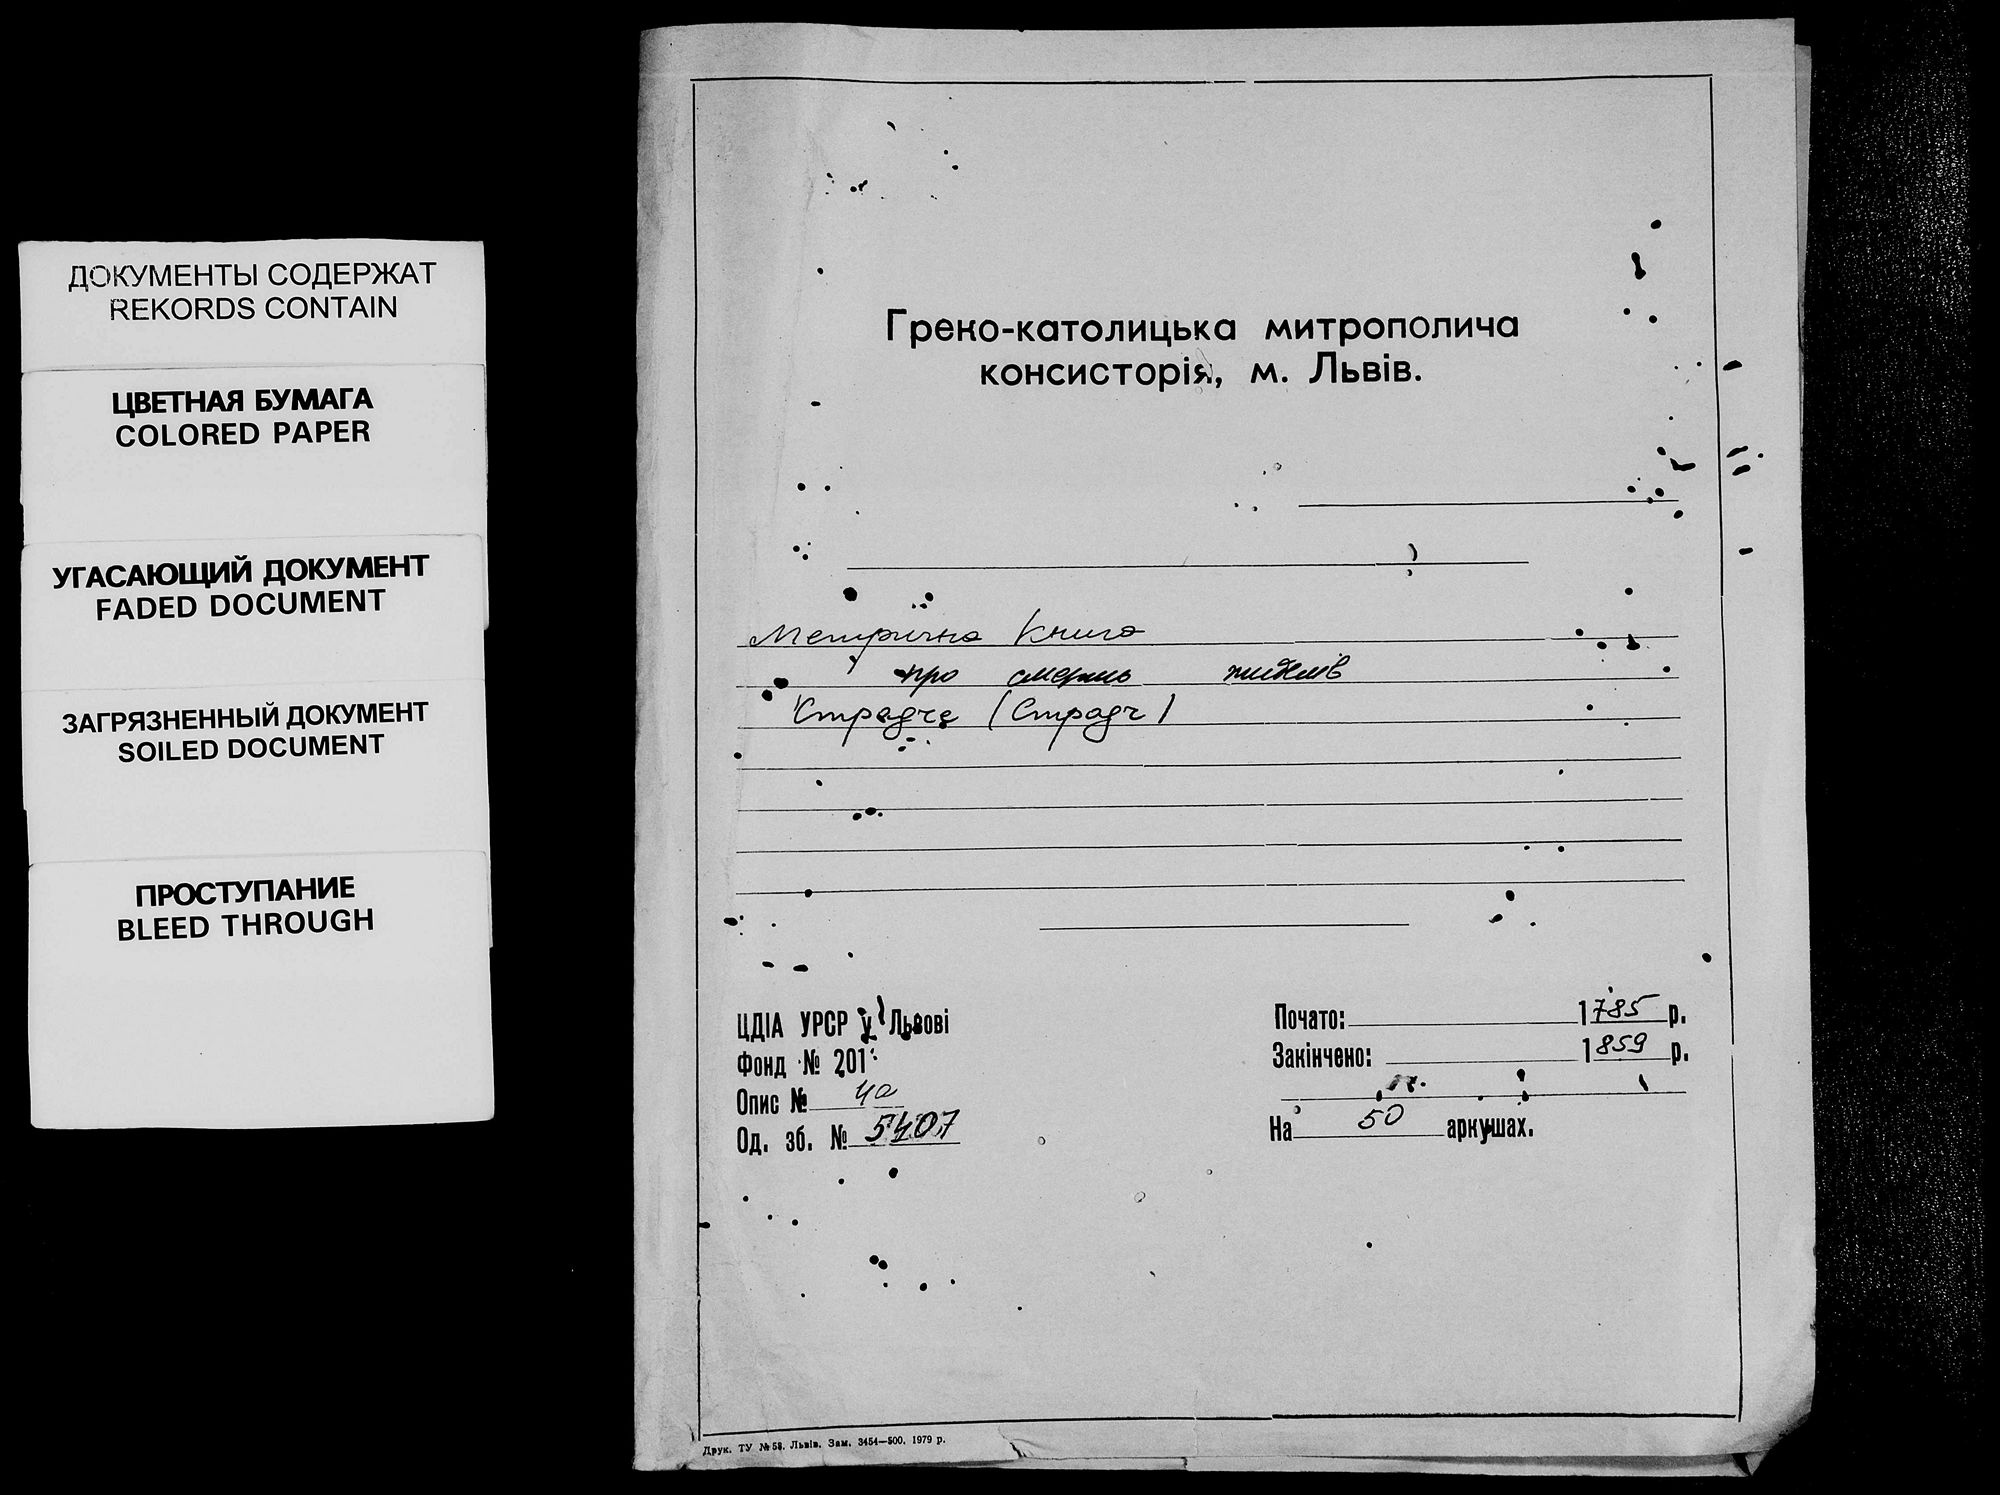 ДОКУМЕНТЫ СОДЕРЖАТ
REKORDS CONTAIN
ЦВЕТНАЯ БУМАГА
COLORED PAPER
УГАСАЮЩИЙ ДОКУМЕНТ
FADED DOCUMENT
ЗАГРЯЗНЕННЫЙ ДОКУМЕНТ
SOILED DOCUMENT
ПРОСТУПАНИЕ
BLEED THROUGH
Греко-католицька митрополича
консисторія, м. Львів.
Метрична книга
про смерть жителів
Страдче (Страдч)
ЦДІА УРСР у Львові
Фонд № 201
Опис № 4а
Од. зб. № 5407
Почато: 1785 р.
Закінчено: 1859 р.
На 50 аркушах.
Друк. ТУ № 58. Львів. Зам. 3454—500. 1979 р.